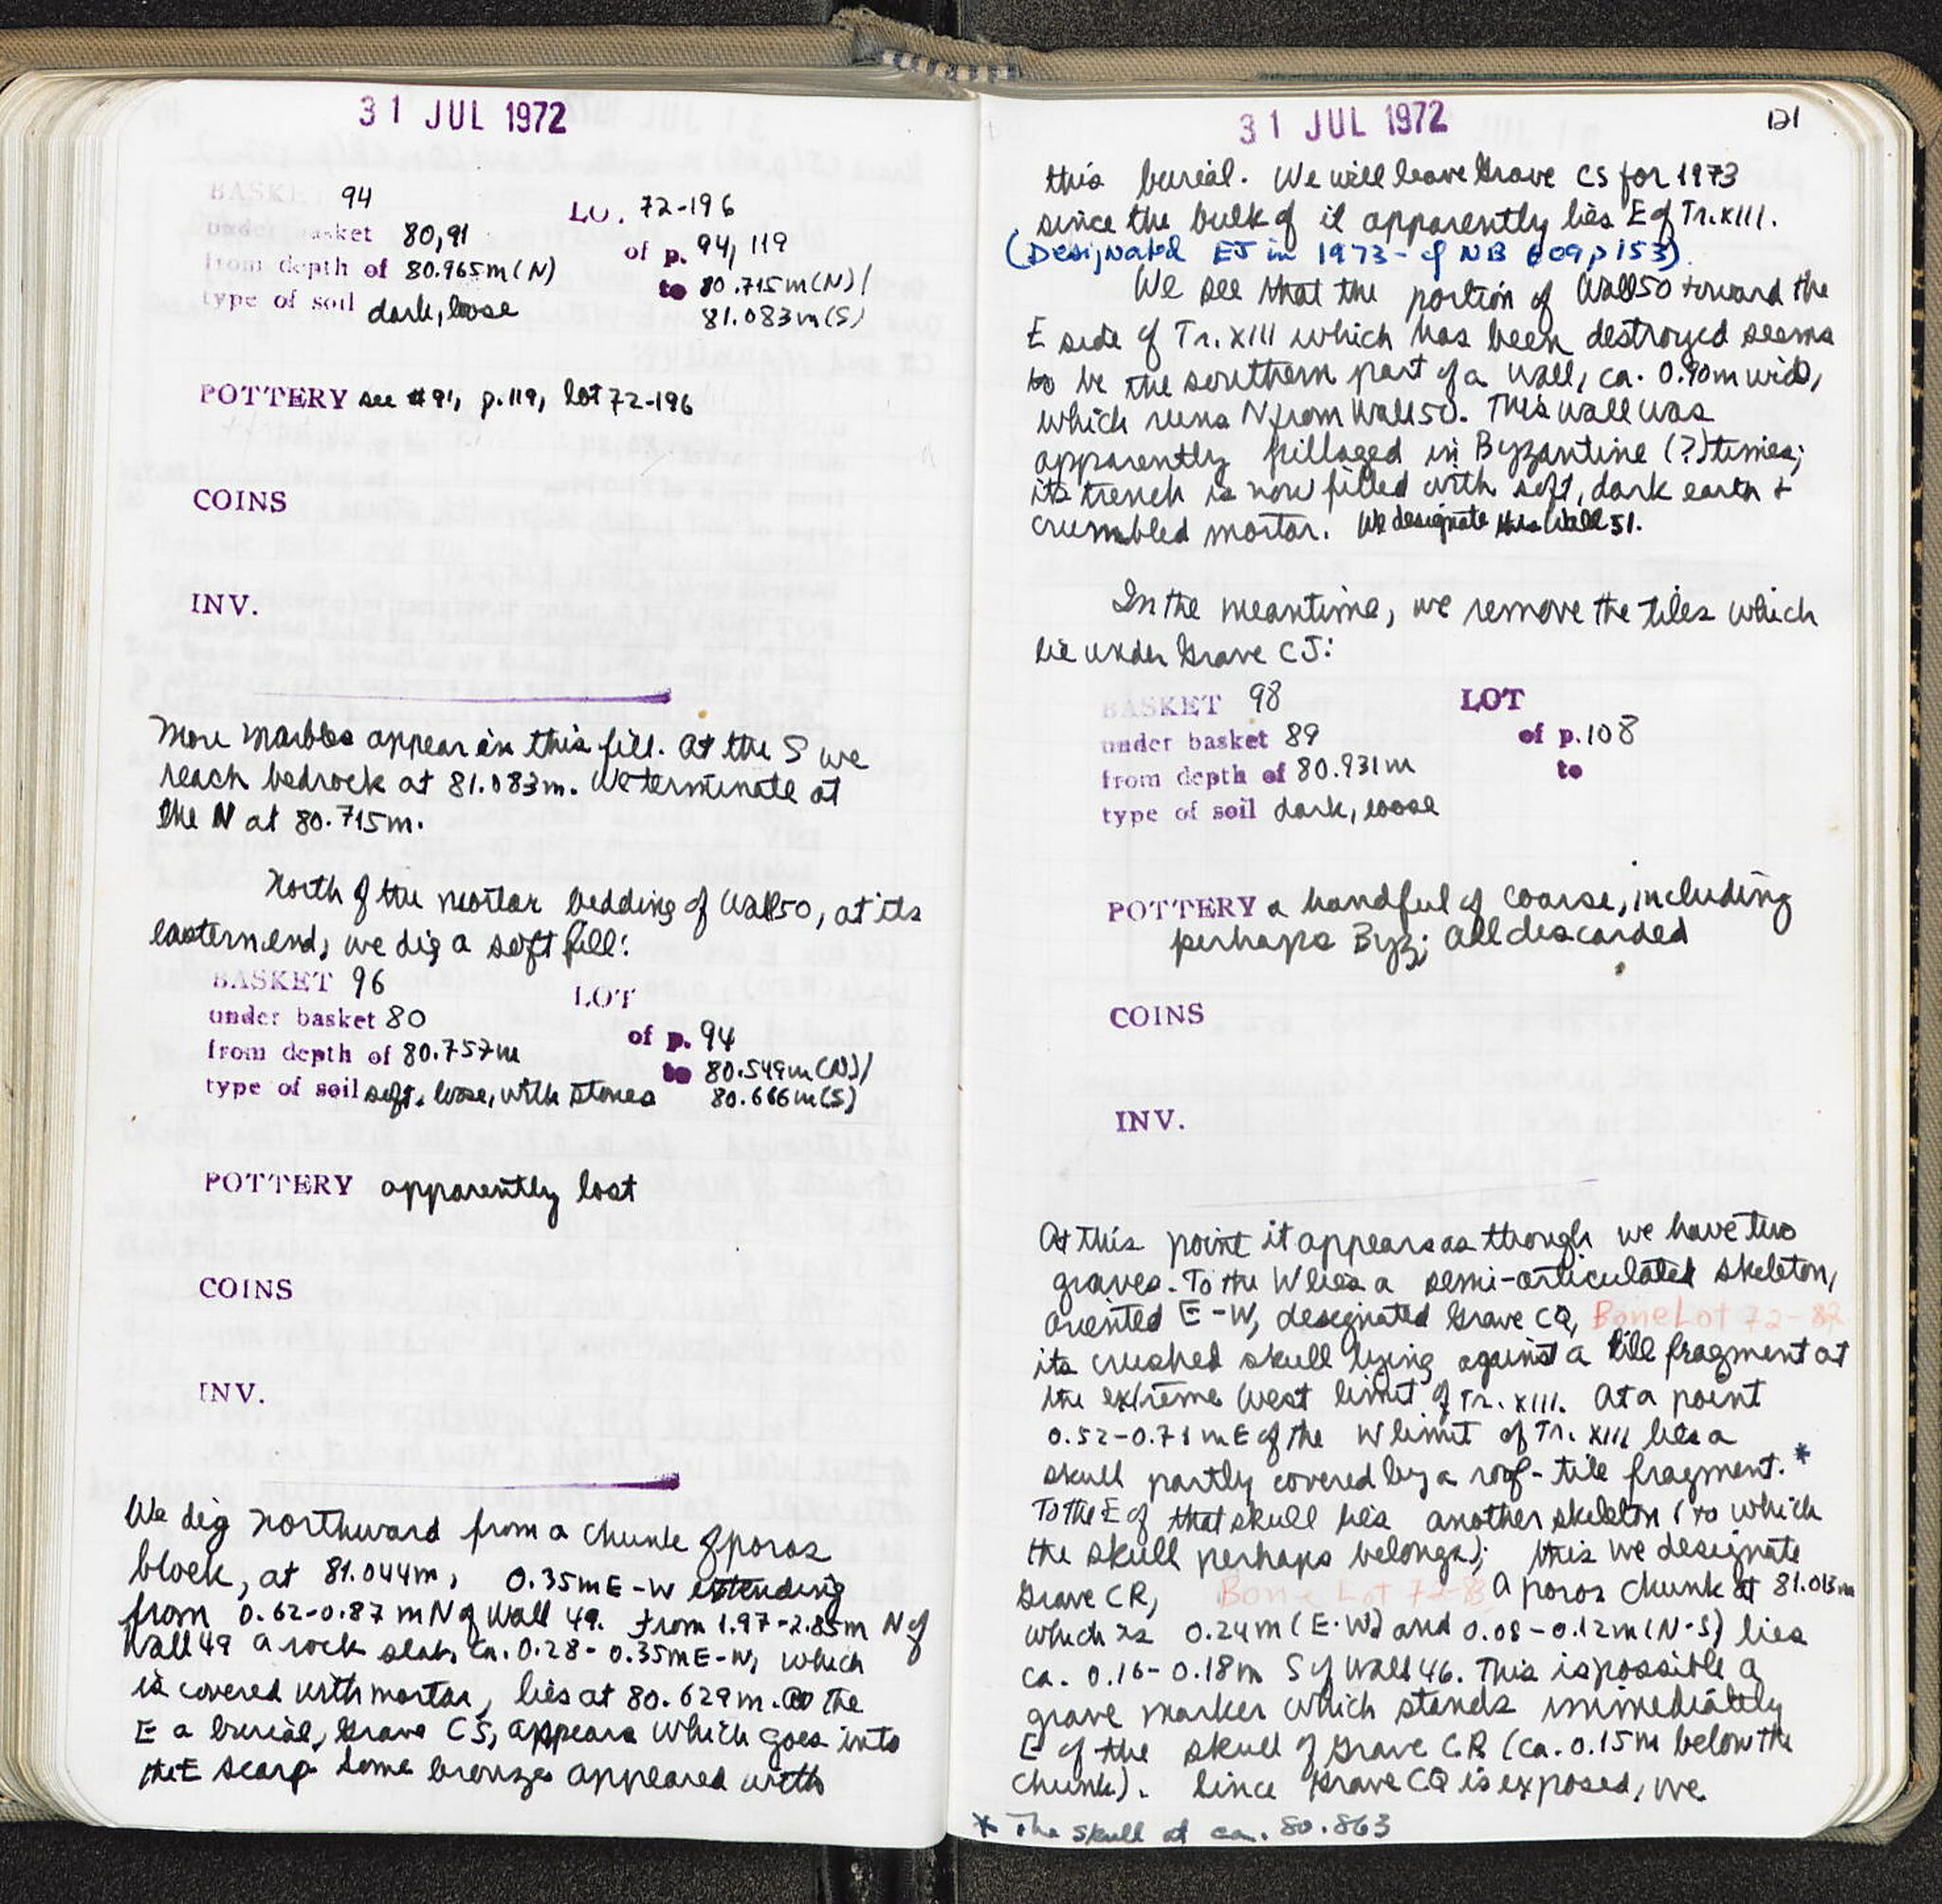 31 JUL 1972
BASKET 94
LOT 72-196
under basket 80,91
of p. 94, 119
from depth of 80.965m(N)
to 80.715m(N)/
type of soil dark, loose
81.083m(S)
POTTERY see #91, p.119, lot 72-196
COINS
INV.
More marbles appear in this fill. At the S we
reach bedrock at 81.083m. We terminate at
the N at 80.715m.
North of the mortar bedding of Wall 50, at its
eastern end, we dig a soft fill:
BASKET 96
LOT
under basket 80
of p. 94
from depth of 80.757m
to 80.549m(N)/
type of soil soft, loose, with stones
80.666m(S)
POTTERY apparently lost
COINS
INV.
We dig northward from a chunk of poros
block, at 81.044m, 0.35m E-W extending
from 0.62-0.87 m N of Wall 49. From 1.97-2.85m N of
Wall 49 a rock slab, ca. 0.28-0.35m E-W, which
is covered with mortar, lies at 80.629m. To the
E a burial, Grave CS, appears which goes into
the E scarp. Some bronze appeared with
31 JUL 1972
121
this burial. We will leave Grave CS for 1973
since the bulk of it apparently lies E of Tr. XIII.
(Designated EJ in 1973 - cf NB 609 p 153).
We see that the portion of Wall 50 toward the
E side of Tr. XIII which has been destroyed seems
to be the southern part of a wall, ca. 0.90m wide,
which runs N from Wall 50. This wall was
apparently pillaged in Byzantine (?) times;
its trench is now filled with soft, dark earth +
crumbled mortar. We designate this Wall 51.
In the meantime, we remove the tiles which
lie under Grave CJ:
BASKET 98
LOT
under basket 89
of p. 108
from depth of 80.931m
to
type of soil dark, loose
POTTERY a handful of coarse, including
perhaps Byz; all discarded
COINS
INV.
At this point it appears as though we have two
graves. To the W lies a semi-articulated skeleton,
oriented E-W, designated Grave CQ, Bone Lot 72-82
its crushed skull lying against a tile fragment at
the extreme west limit of Tr. XIII. At a point
0.52-0.71 m E of the W limit of Tr. XIII lies a
skull partly covered by a roof-tile fragment. *
To the E of that skull lies another skeleton (to which
the skull perhaps belongs); this we designate
Grave CR, Bone Lot 72-83 A poros chunk at 81.013m
which is 0.24m (E-W) and 0.08-0.12m (N-S) lies
ca. 0.16-0.18m S of Wall 46. This is possible a
grave marker which stands immediately
E of the skull of Grave CR (ca. 0.15m below the
chunk). Since Grave CQ is exposed, we
* The skull at ca. 80.863